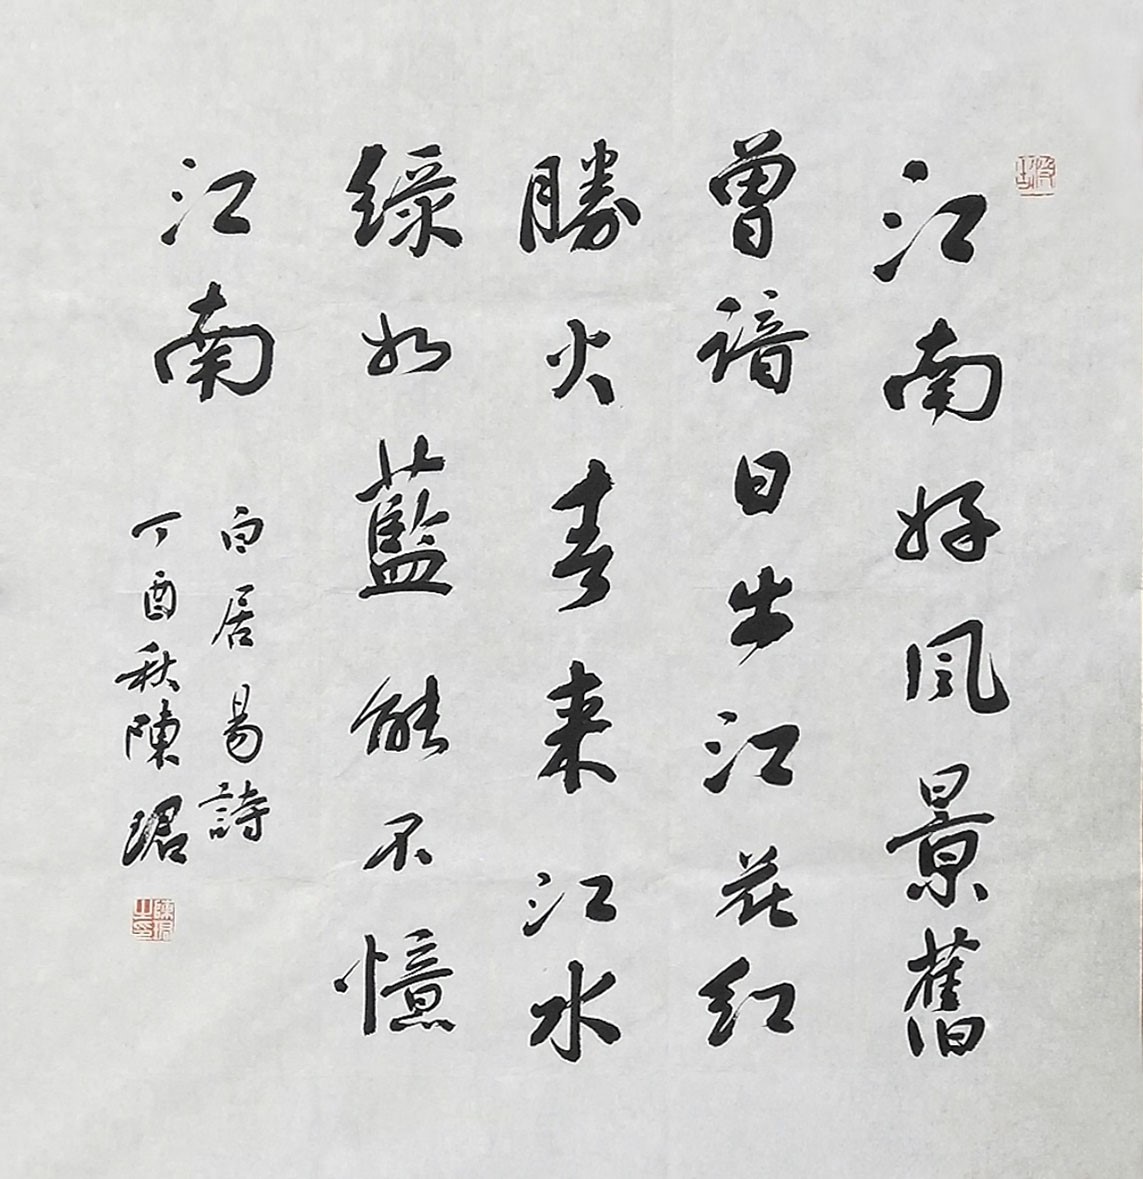 江南好风景舊
曾諳日出江花红
勝火春来江水
綠如藍能不憶
江南
白居易詩
丁酉秋陳珺